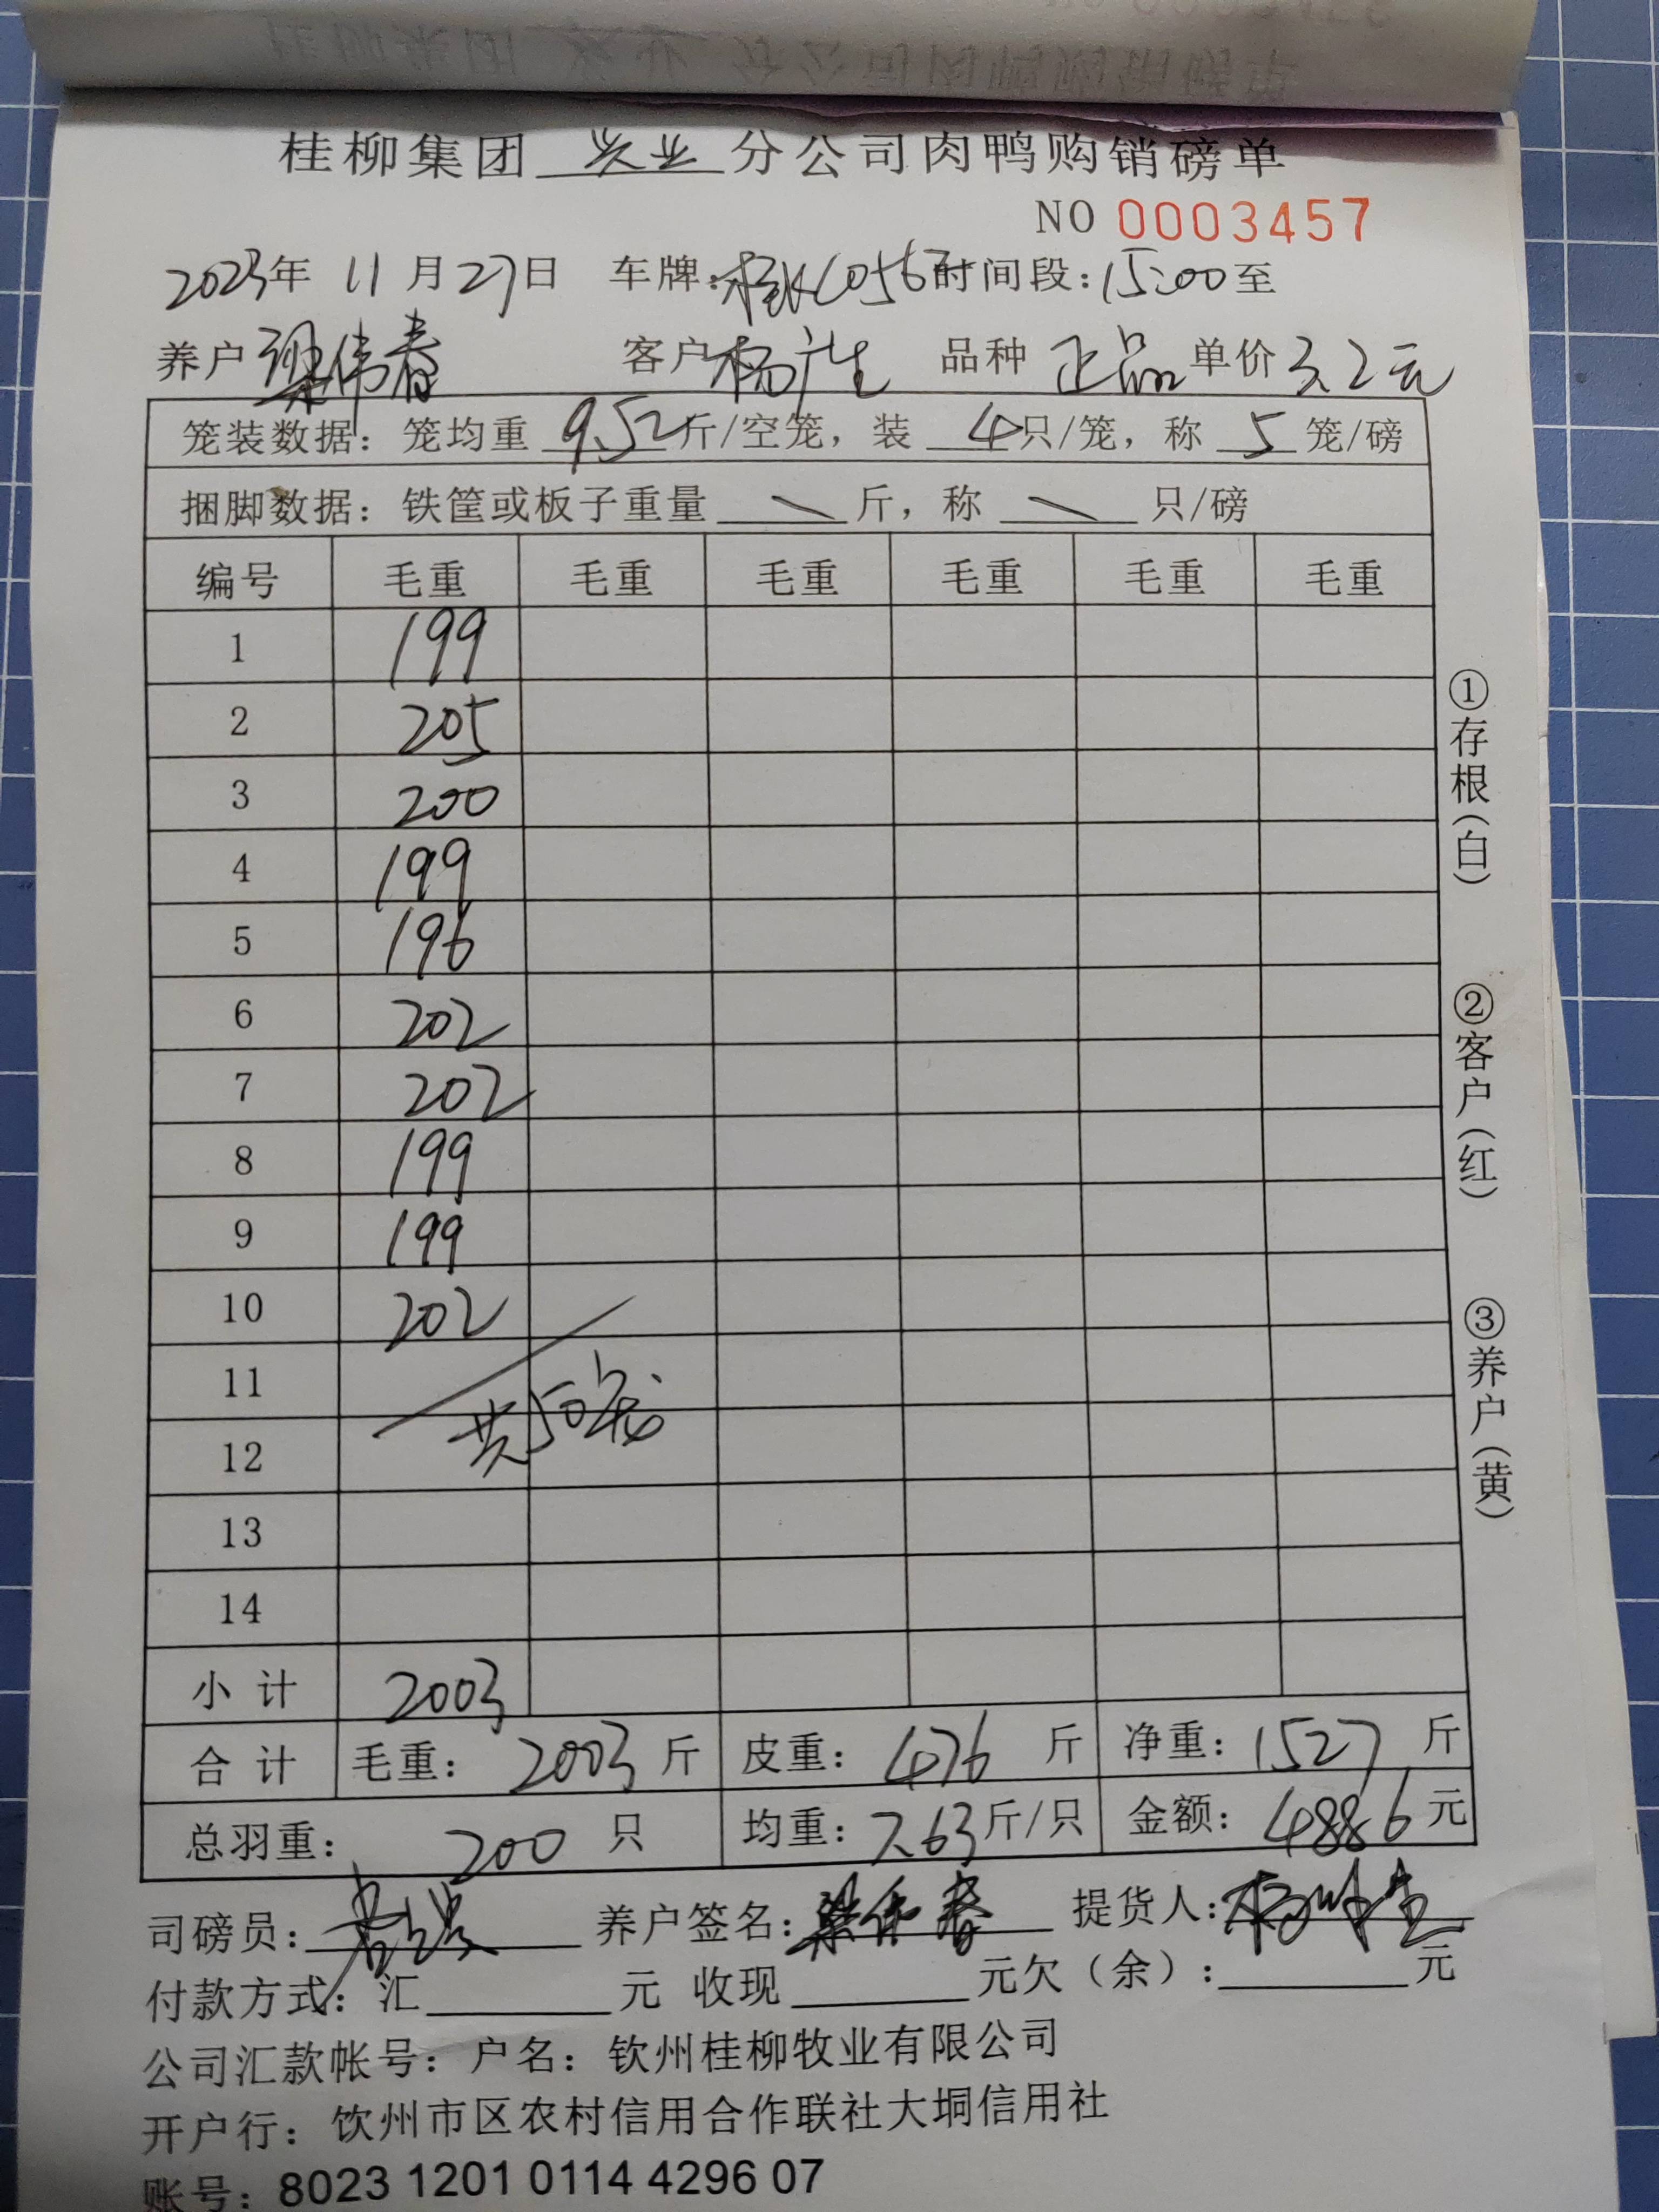 桂柳集团 兴业 分公司肉鸭购销磅单
NO 0003457
2023年 11月27日 车牌: 时间段:15:00至
养户 梁伟春 客户 杨广生 品种 正品 单价 3.2元
笼装数据: 笼均重 9.52斤/空笼, 装 4只/笼, 称 5 笼/磅
捆脚数据: 铁筐或板子重量 \ 斤, 称 \ 只/磅
编号 毛重 毛重 毛重 毛重 毛重 毛重
1 199
2 205
3 200
4 199
5 196
6 202
7 202
8 199
9 199
10 202
11
共50笼
12
13
14
小计 2003
合计 毛重: 2003斤 皮重: 476 斤 净重: 1527 斤
总羽重: 200 只 均重: 7.63斤/只 金额: 4886元
司磅员: 养户签名: 梁伟春 提货人:
付款方式: 汇 元 收现 元欠(余): 元
公司汇款帐号: 户名: 钦州桂柳牧业有限公司
开户行: 钦州市区农村信用合作联社大垌信用社
账号: 8023 1201 0114 4296 07
①存根(白)
②客户(红)
③养户(黄)